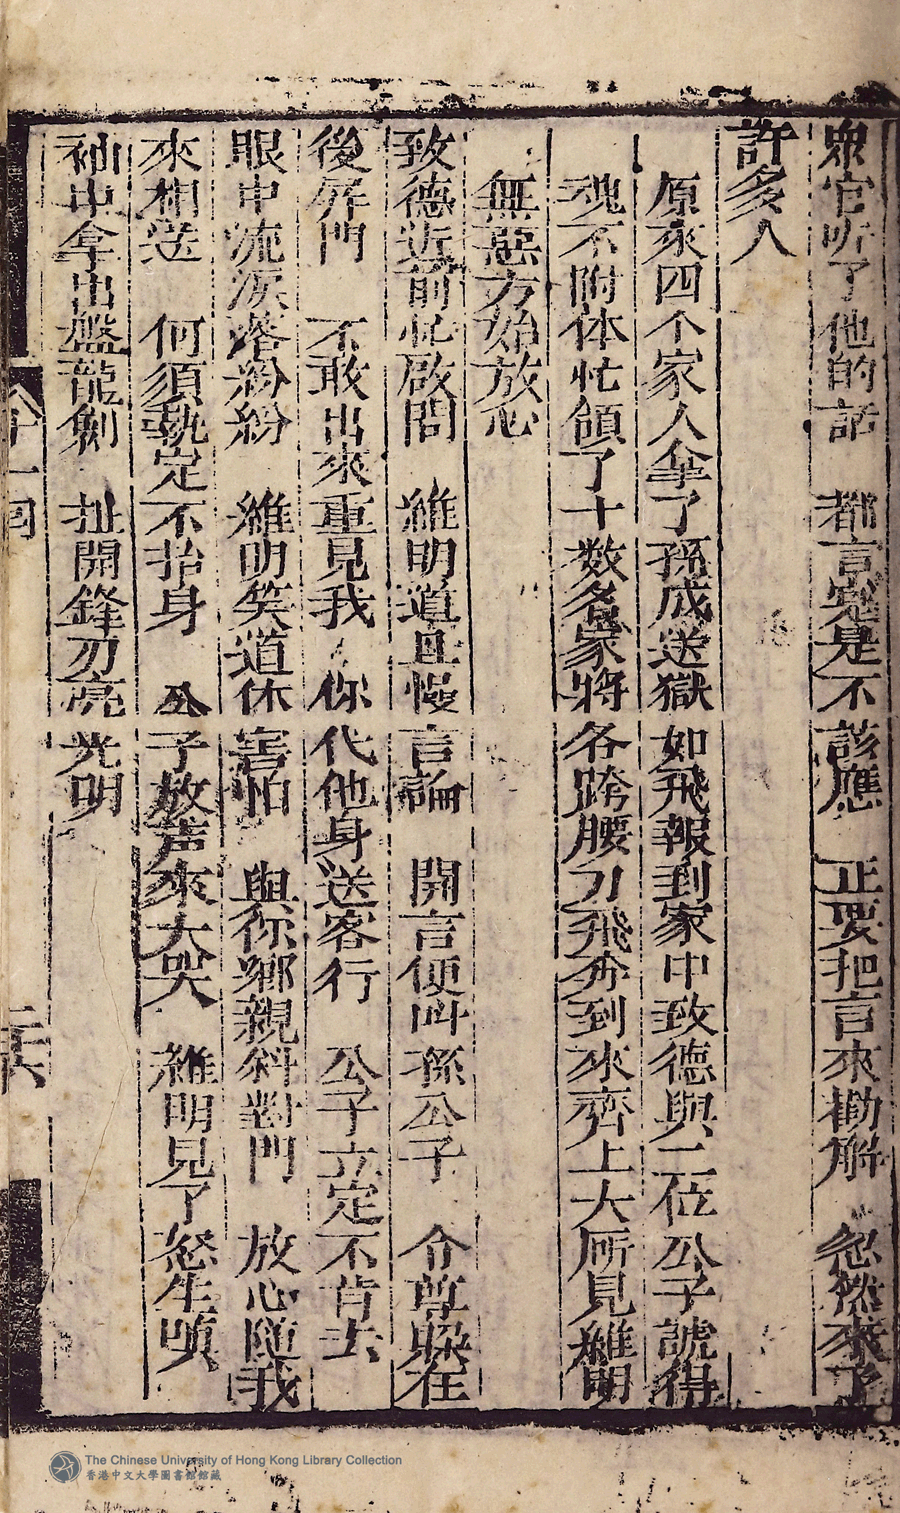 衆官听了他的話　都言寃是不該應　正要把言來勸解　忽然來了
許多人
原來四个家人拿了孫成送獄如飛報到家中致德與二位公子諕得
魂不附体忙領了十数名家將各跨腰刀飛奔到來齊上大所見維明
無惡方始放心
致德近前忙啟問　維明道且慢言論　開言便叫孫公子　令尊躱在
後屏門　不敢出來重見我　你代他身送客行　公子立定不肯去
眼中流淚落紛紛　維明笑道休害怕　與你鄉親斜對門　放心隨我
來相送　何須執定不抬身　公子放声來大哭　維明見了怒生嗔
袖中拿出盤龍劍　扯開鋒刃亮光明
十一回
二十六
The Chinese University of Hong Kong Library Collection
香港中文大學圖書館館藏